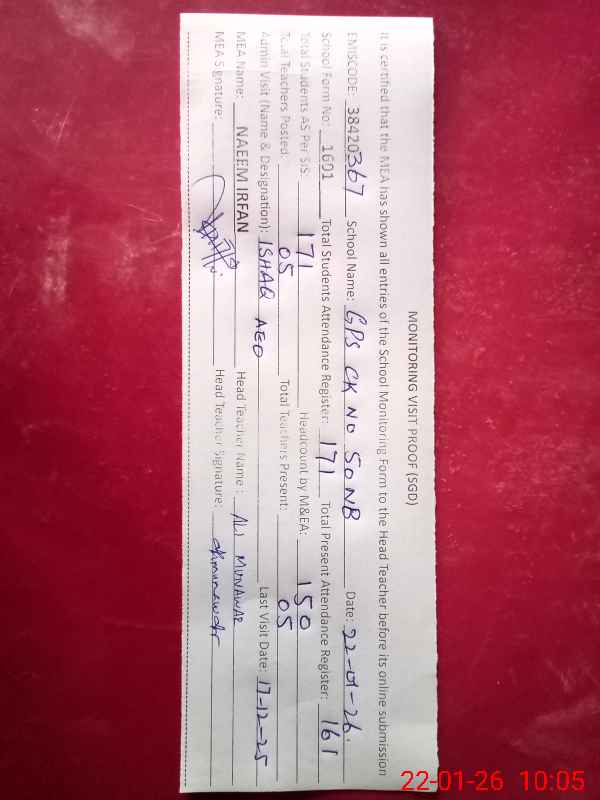 MONITORING VISIT PROOF (SGD)
It is certified that the MEA has shown all entries of the School Monitoring Form to the Head Teacher before its online submission
EMISCODE: 38420367 School Name: GPS CK NO 50NB Date: 22-01-26.
School Form No: 1601 Total Students Attendance Register: 171 Total Present Attendance Register: 161
Total Students AS Per SIS: 171 Headcount by M&EA: 150
Total Teachers Posted: 05 Total Teachers Present: 05
Admin Visit (Name & Designation): ISHAQ AEO Last Visit Date: 17-12-25
MEA Name: NAEEM IRFAN Head Teacher Name: ALI MUNAWAR
MEA Signature: Head Teacher Signature: alimunawar
22-01-26 10:05